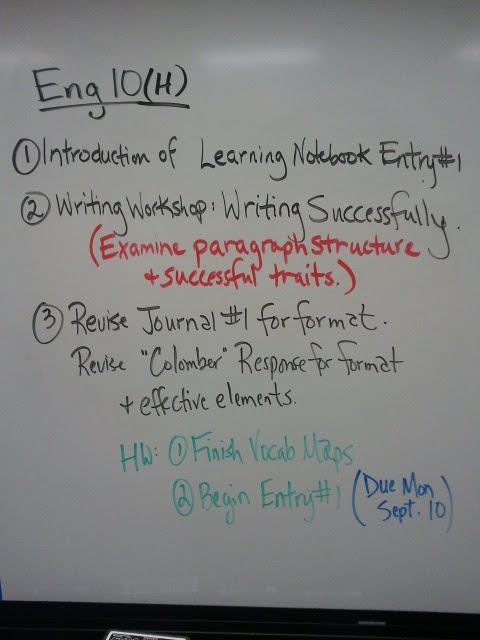 Eng 10(H)
① Introduction of Learning Notebook Entry #1
② Writing Workshop: Writing Successfully.
(Examine paragraph structure
+ successful traits.)
③ Revise Journal #1 for format.
Revise "Colomber" Response for format
+ effective elements.
HW: ① Finish Vocab Maps
② Begin Entry #1 (Due Mon
Sept. 10)